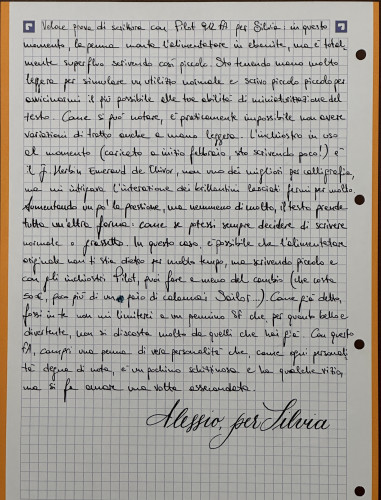 Veloce prova di scrittura con Pilot 912 FA per Silvia: in questo
momento, la penna monta l'alimentatore in ebanite, ma è total_
mente superfluo scrivendo così piccolo. Sto tenendo mano molto
leggera per simulare un utilizzo normale e scrivo piccolo piccolo per
avvicinarmi il più possibile alle tue abilità di miniaturizzazione del
testo. Come si può notare, è praticamente impossibile non avere
variazioni di tratto anche a mano leggera. L'inchiostro in uso
al momento (caricato a inizio febbraio, sto scrivendo poco!) è
il J. Herbin Emeraud de Chivor, non uno dei migliori per calligrafia,
ma mi intrigava l'interazione dei brillantini lasciati fermi per molto.
Aumentando un po' la pressione, ma nemmeno di molto, il testo prende
tutta un'altra forma: come se potessi sempre decidere di scrivere
normale o grassetto. In questo caso, è possibile che l'alimentatore
originale non ti stia dietro per molto tempo, ma scrivendo piccolo e
con gli inchiostri Pilot, puoi fare a meno del cambio (che costa
50€, poco più di un paio di calamai Sailor..). Come già detto,
fossi in te non mi limiterei a un pennino SF che per quanto bello e
divertente, non si discosta molto da quelli che hai già. Con questo
FA, compri una penna di vera personalità che, come ogni personali
tà degna di nota, è un pochino schizzinosa e ha qualche vizio,
ma si fa amare una volta assecondata.
Alessio, per Silvia